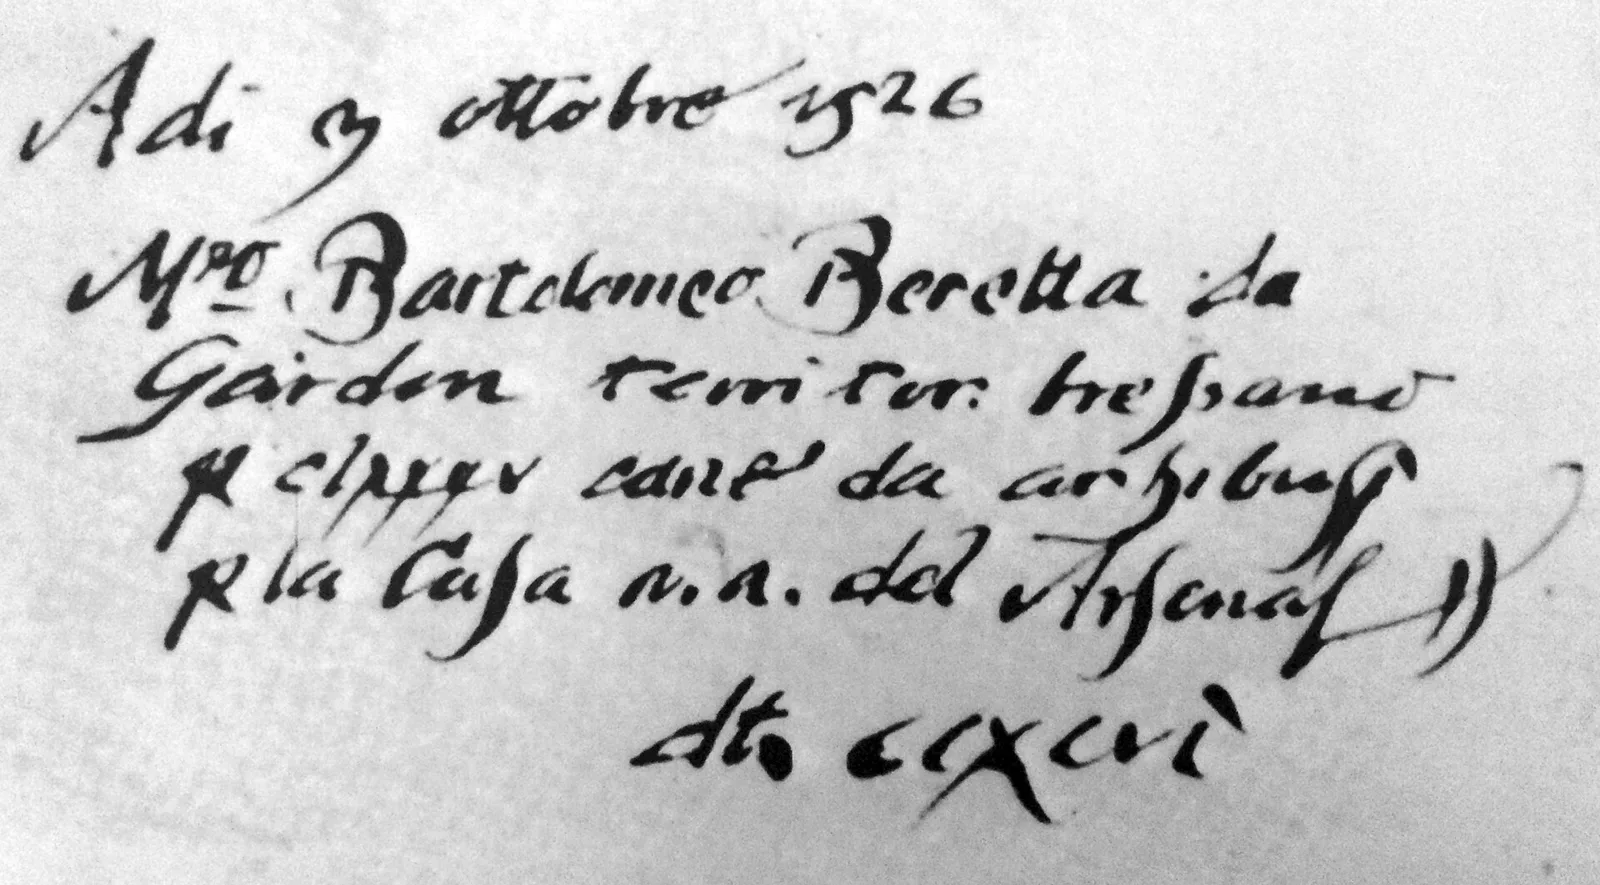 Adi 3 ottobre 1526
Mro Bartolomeo Beretta da
Gardon territor: bressano
p clxxxv cane da archibusi
p la Casa n.n. del Arsenal
dti ccxcvi